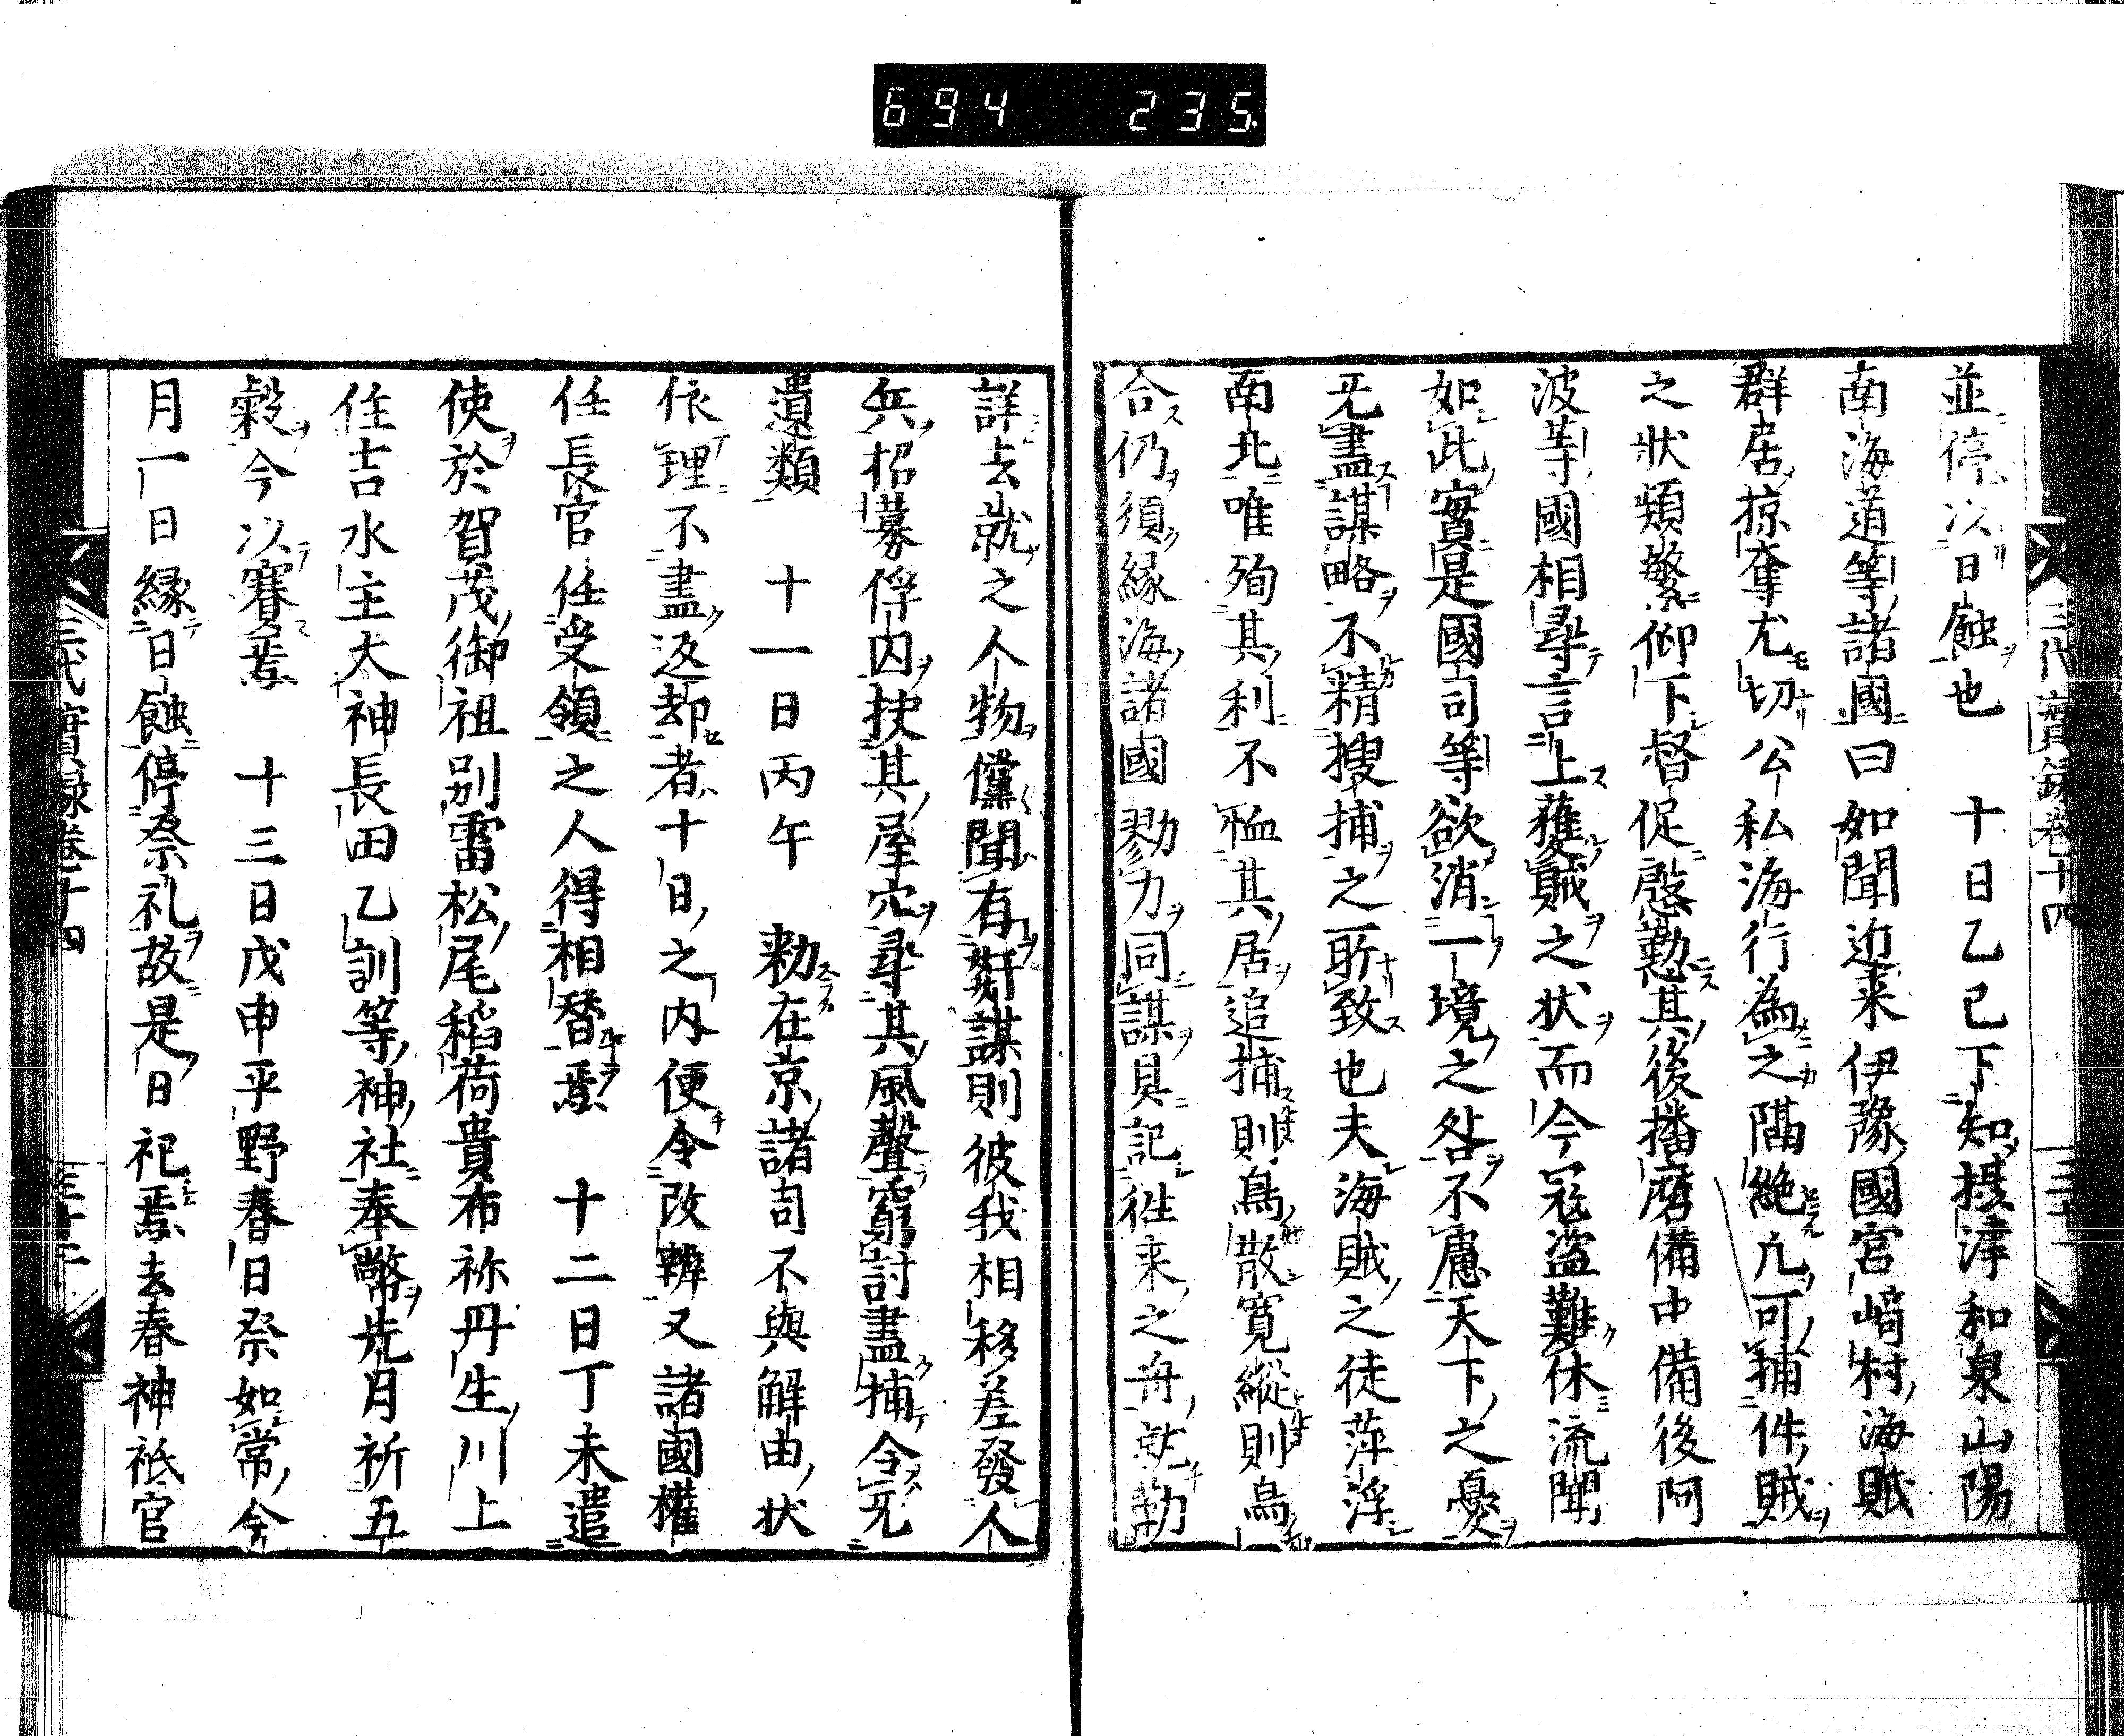 694 235
三代實録卷十四
並停以日蝕也　十日乙巳下知摂津和泉山陽
南海道等諸國曰如聞迫来伊豫國宮﨑村海賊
群居掠奪尤切公私海行為之隔絶凢可捕件賊
之狀頻繁仰下督促慇懃其後播磨備中備後阿
波等國相尋言上獲賊之状而今冦盗難休流聞
如此實是國司等欲消一境之咎不慮天下之憂
无盡謀略不精搜捕之所致也夫海賊之徒萍浮
南北唯殉其利不恤其居追捕則鳥散寛縱則烏
合仍須縁海諸國勠力同謀具記徃来之舟就勒
詳去就之人物儻聞有奸謀則彼我相移差發人
兵招募俘囚抶其屋穴尋其風聲窮討盡捕令无
遺類　十一日丙午　勑在京諸司不與解由状
依理不盡返却者十日之内便令改辨又諸國權
任長官任受領之人得相替焉　十二日丁未遣
使於賀茂御祖別雷松尾稻荷貴布祢丹生川上
住吉水主大神長田乙訓等神社奉幣先月祈五
穀今以賽焉　十三日戊申平野春日祭如常今
月一日縁日蝕停祭礼故是日祀焉去春神祇官
三代實録卷十四